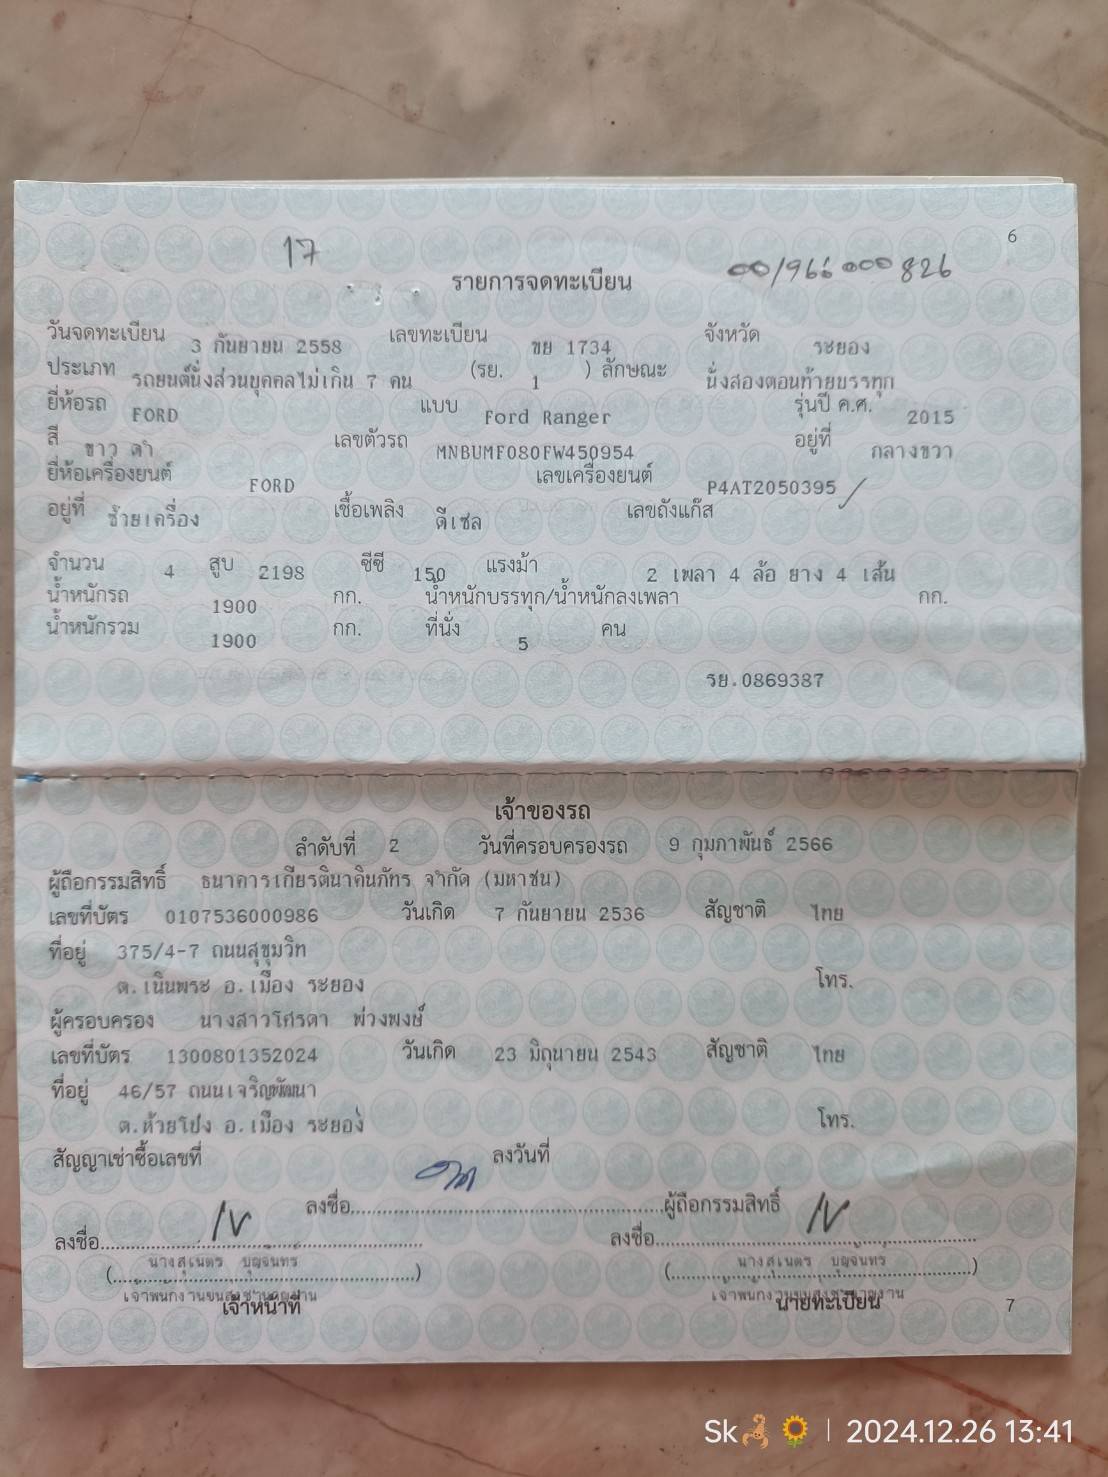 6
17
00/966000826
รายการจดทะเบียน
วันจดทะเบียน 3 กันยายน 2558 เลขทะเบียน ขย 1734 จังหวัด ระยอง
ประเภท รถยนต์นั่งส่วนบุคคลไม่เกิน 7 คน (รย. 1 ) ลักษณะ นั่งสองตอนท้ายบรรทุก
ยี่ห้อรถ FORD แบบ Ford Ranger รุ่นปี ค.ศ. 2015
สี ขาว ดำ เลขตัวรถ MNBUMF080FW450954 อยู่ที่ กลางขวา
ยี่ห้อเครื่องยนต์ FORD เลขเครื่องยนต์ P4AT2050395
อยู่ที่ ซ้ายเครื่อง เชื้อเพลิง ดีเซล เลขถังแก๊ส
จำนวน 4 สูบ 2198 ซีซี 150 แรงม้า 2 เพลา 4 ล้อ ยาง 4 เส้น
น้ำหนักรถ 1900 กก. น้ำหนักบรรทุก/น้ำหนักลงเพลา กก.
น้ำหนักรวม 1900 กก. ที่นั่ง 5 คน
รย.0869387
เจ้าของรถ
ลำดับที่ 2 วันที่ครอบครองรถ 9 กุมภาพันธ์ 2566
ผู้ถือกรรมสิทธิ์ ธนาคารเกียรตินาคินภัทร จำกัด (มหาชน)
เลขที่บัตร 0107536000986 วันเกิด 7 กันยายน 2536 สัญชาติ ไทย
ที่อยู่ 375/4-7 ถนนสุขุมวิท
ต.เนินพระ อ.เมือง ระยอง โทร.
ผู้ครอบครอง นางสาวโศรดา พ่วงพงษ์
เลขที่บัตร 1300801352024 วันเกิด 23 มิถุนายน 2543 สัญชาติ ไทย
ที่อยู่ 46/57 ถนนเจริญพัฒนา
ต.ห้วยโป่ง อ.เมือง ระยอง โทร.
สัญญาเช่าซื้อเลขที่ ลงวันที่
ลงชื่อ..........ผู้ถือกรรมสิทธิ์
ลงชื่อ.......... ลงชื่อ..........
นางสุเนตร บุญจันทร์ นางสุเนตร บุญจันทร์
(..........) (..........)
เจ้าพนักงานขนส่งชำนาญงาน เจ้าพนักงานขนส่งชำนาญงาน
เจ้าหน้าที่ นายทะเบียน 7
Sk🦂🌻 | 2024.12.26 13:41